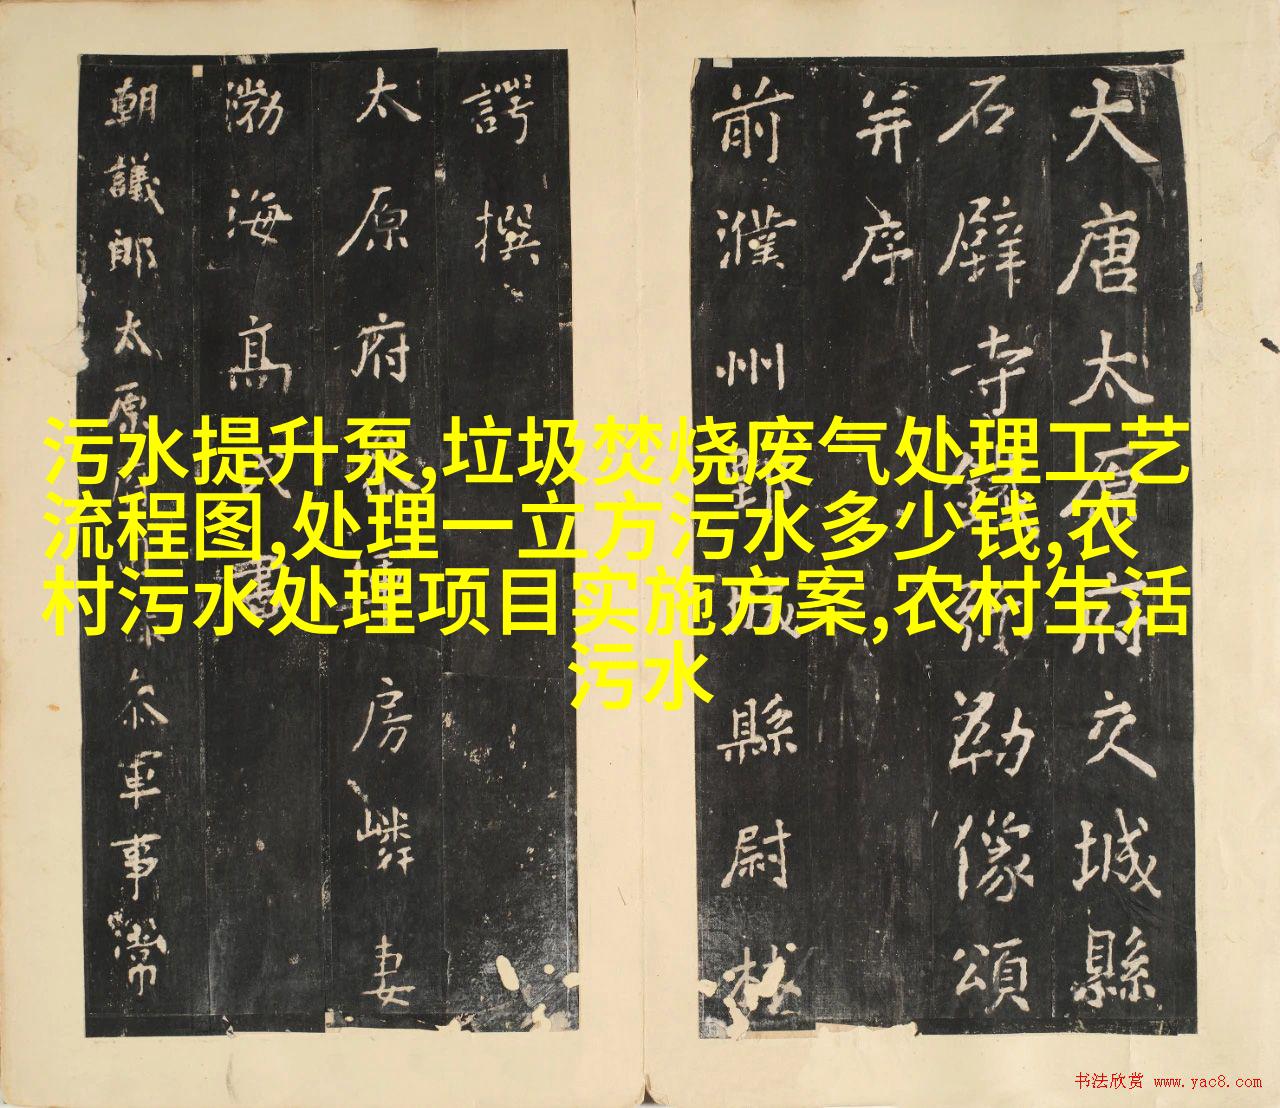 污水提升泵,垃圾焚烧废气处理工艺
流程图,处理一立方污水多少钱,农
村污水处理项目实施方案,农村生活
污水
大唐太原府交城縣
石壁寺鐵彌勒像頌
并序
前濮州鄄城縣尉林
諤撰
太原府房嶙妻
渤海高氏書
朝議郎太原叅軍事常
书法欣赏 www.yac8.com